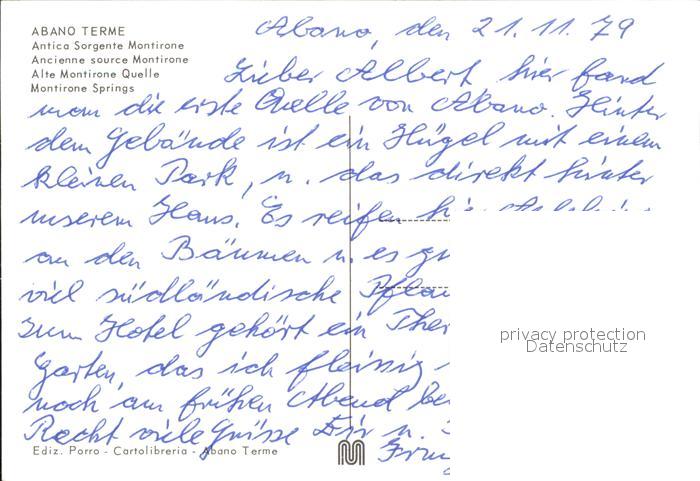 ABANO TERME
Antica Sorgente Montirone
Ancienne source Montirone
Alte Montirone Quelle
Montirone Springs
Abano, den 21.11.79
Lieber Albert, hier fand
man die erste Quelle von Abano. Hinter
dem Gebäude ist ein Hügel mit einem
kleinen Park, u. das direkt hinter
unserem Haus. Es reifen
an den Bäumen u. es
viel südländische
Zum Hotel gehört ein
Garten, das ich fleissig
noch am frühen Abend
Recht viele Grüsse Dir u.
Ediz. Porro - Cartolibreria - Abano Terme
privacy protection
Datenschutz